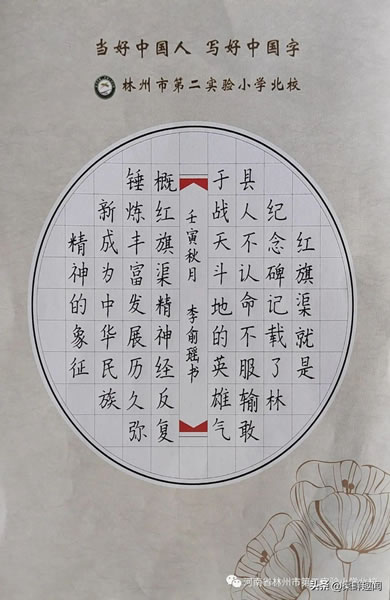 当好中国人 写好中国字
林州市第二实验小学北校
红旗渠就是
纪念碑记载了林
县人不认命不服输敢
于战天斗地的英雄气
壬寅秋月 李俞瑶书
概红旗渠精神经反复
锤炼丰富发展历久弥
新成为中华民族
精神的象征
河南省林州市第二实验小学北校
头条